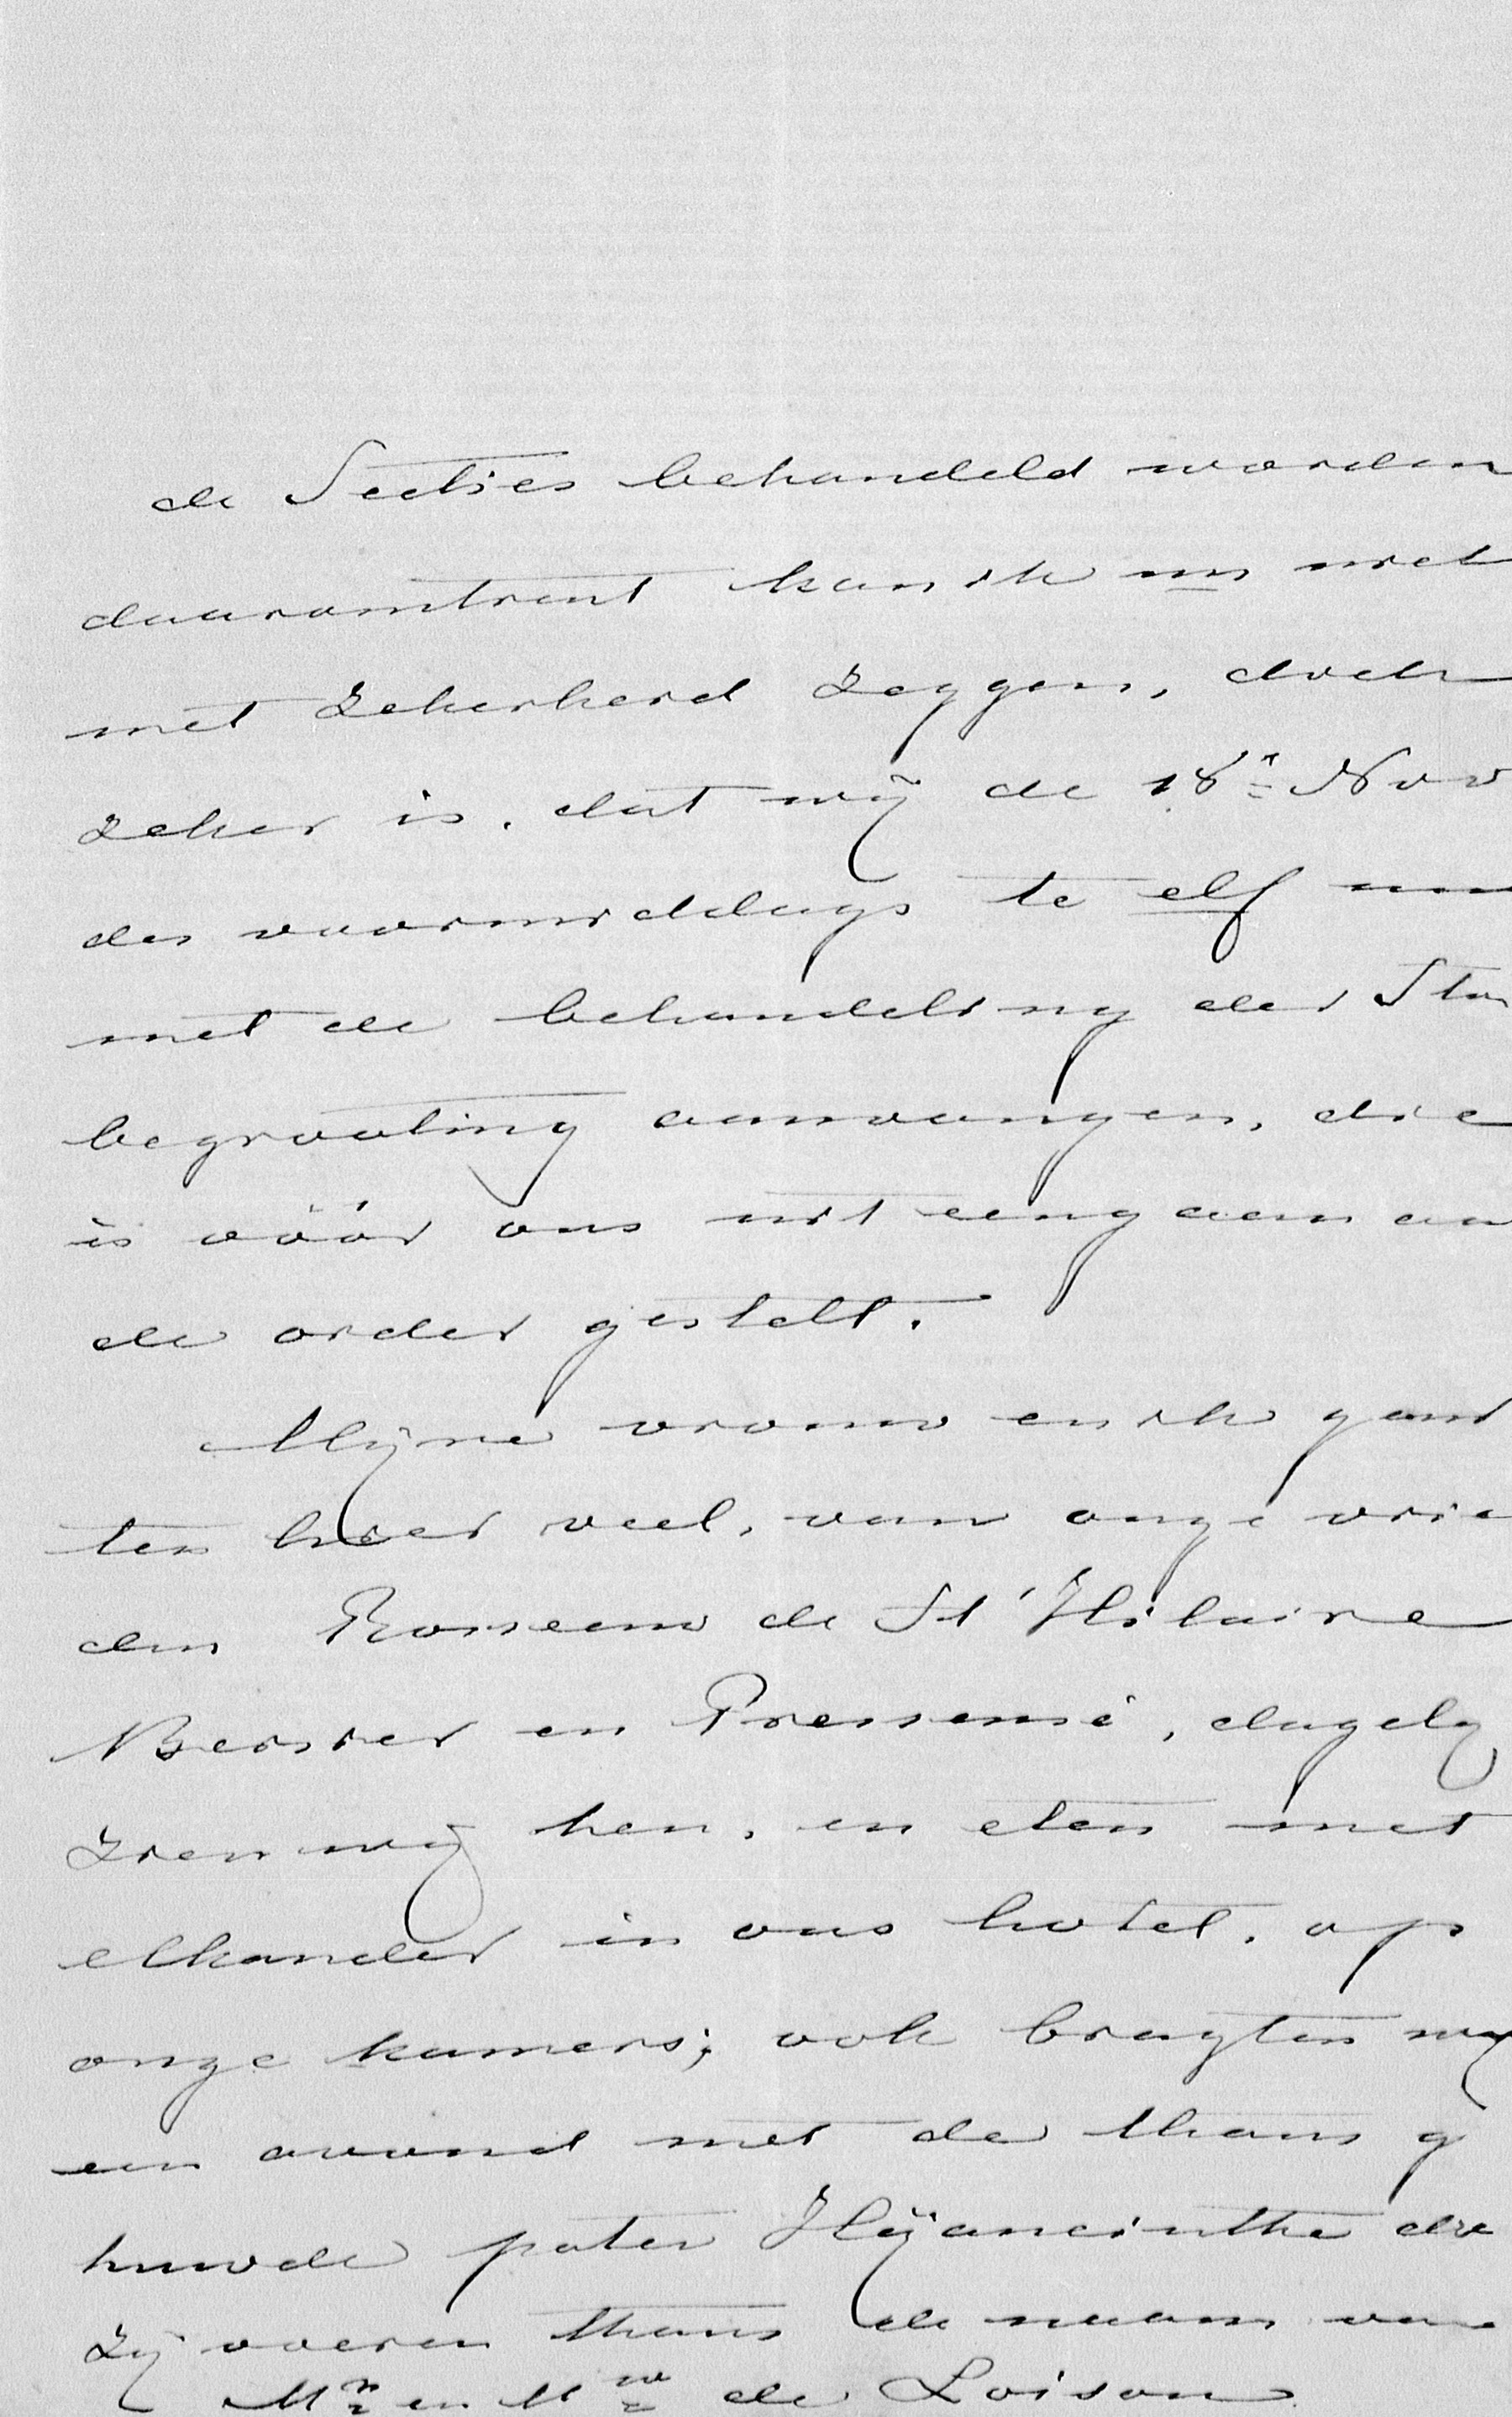 de Secties behandeld worden
daaromtrent kan ik nu niet
met zekerheid zeggen, doch
zeker is, dat wij de 18e Nov
des voormiddags te elf uu
met de behandeling der Sta
begrooting aanvangen, die
is vóór ons uiteengaan aa
de order gestelt.
Mijne vrouw en ik geni
ten hier veel, van onze vrie
den Rosseeuw de St Hilaire
Bersier en Pressensé, dagely
zien wij hen, en eten met
elkander in ons hotel, op
onze kamers; ook bragten wy
een avond met de thans g
huwde pater Hÿancinthe die
Zij voeren thans de naam van
Mr en Mw de Loison